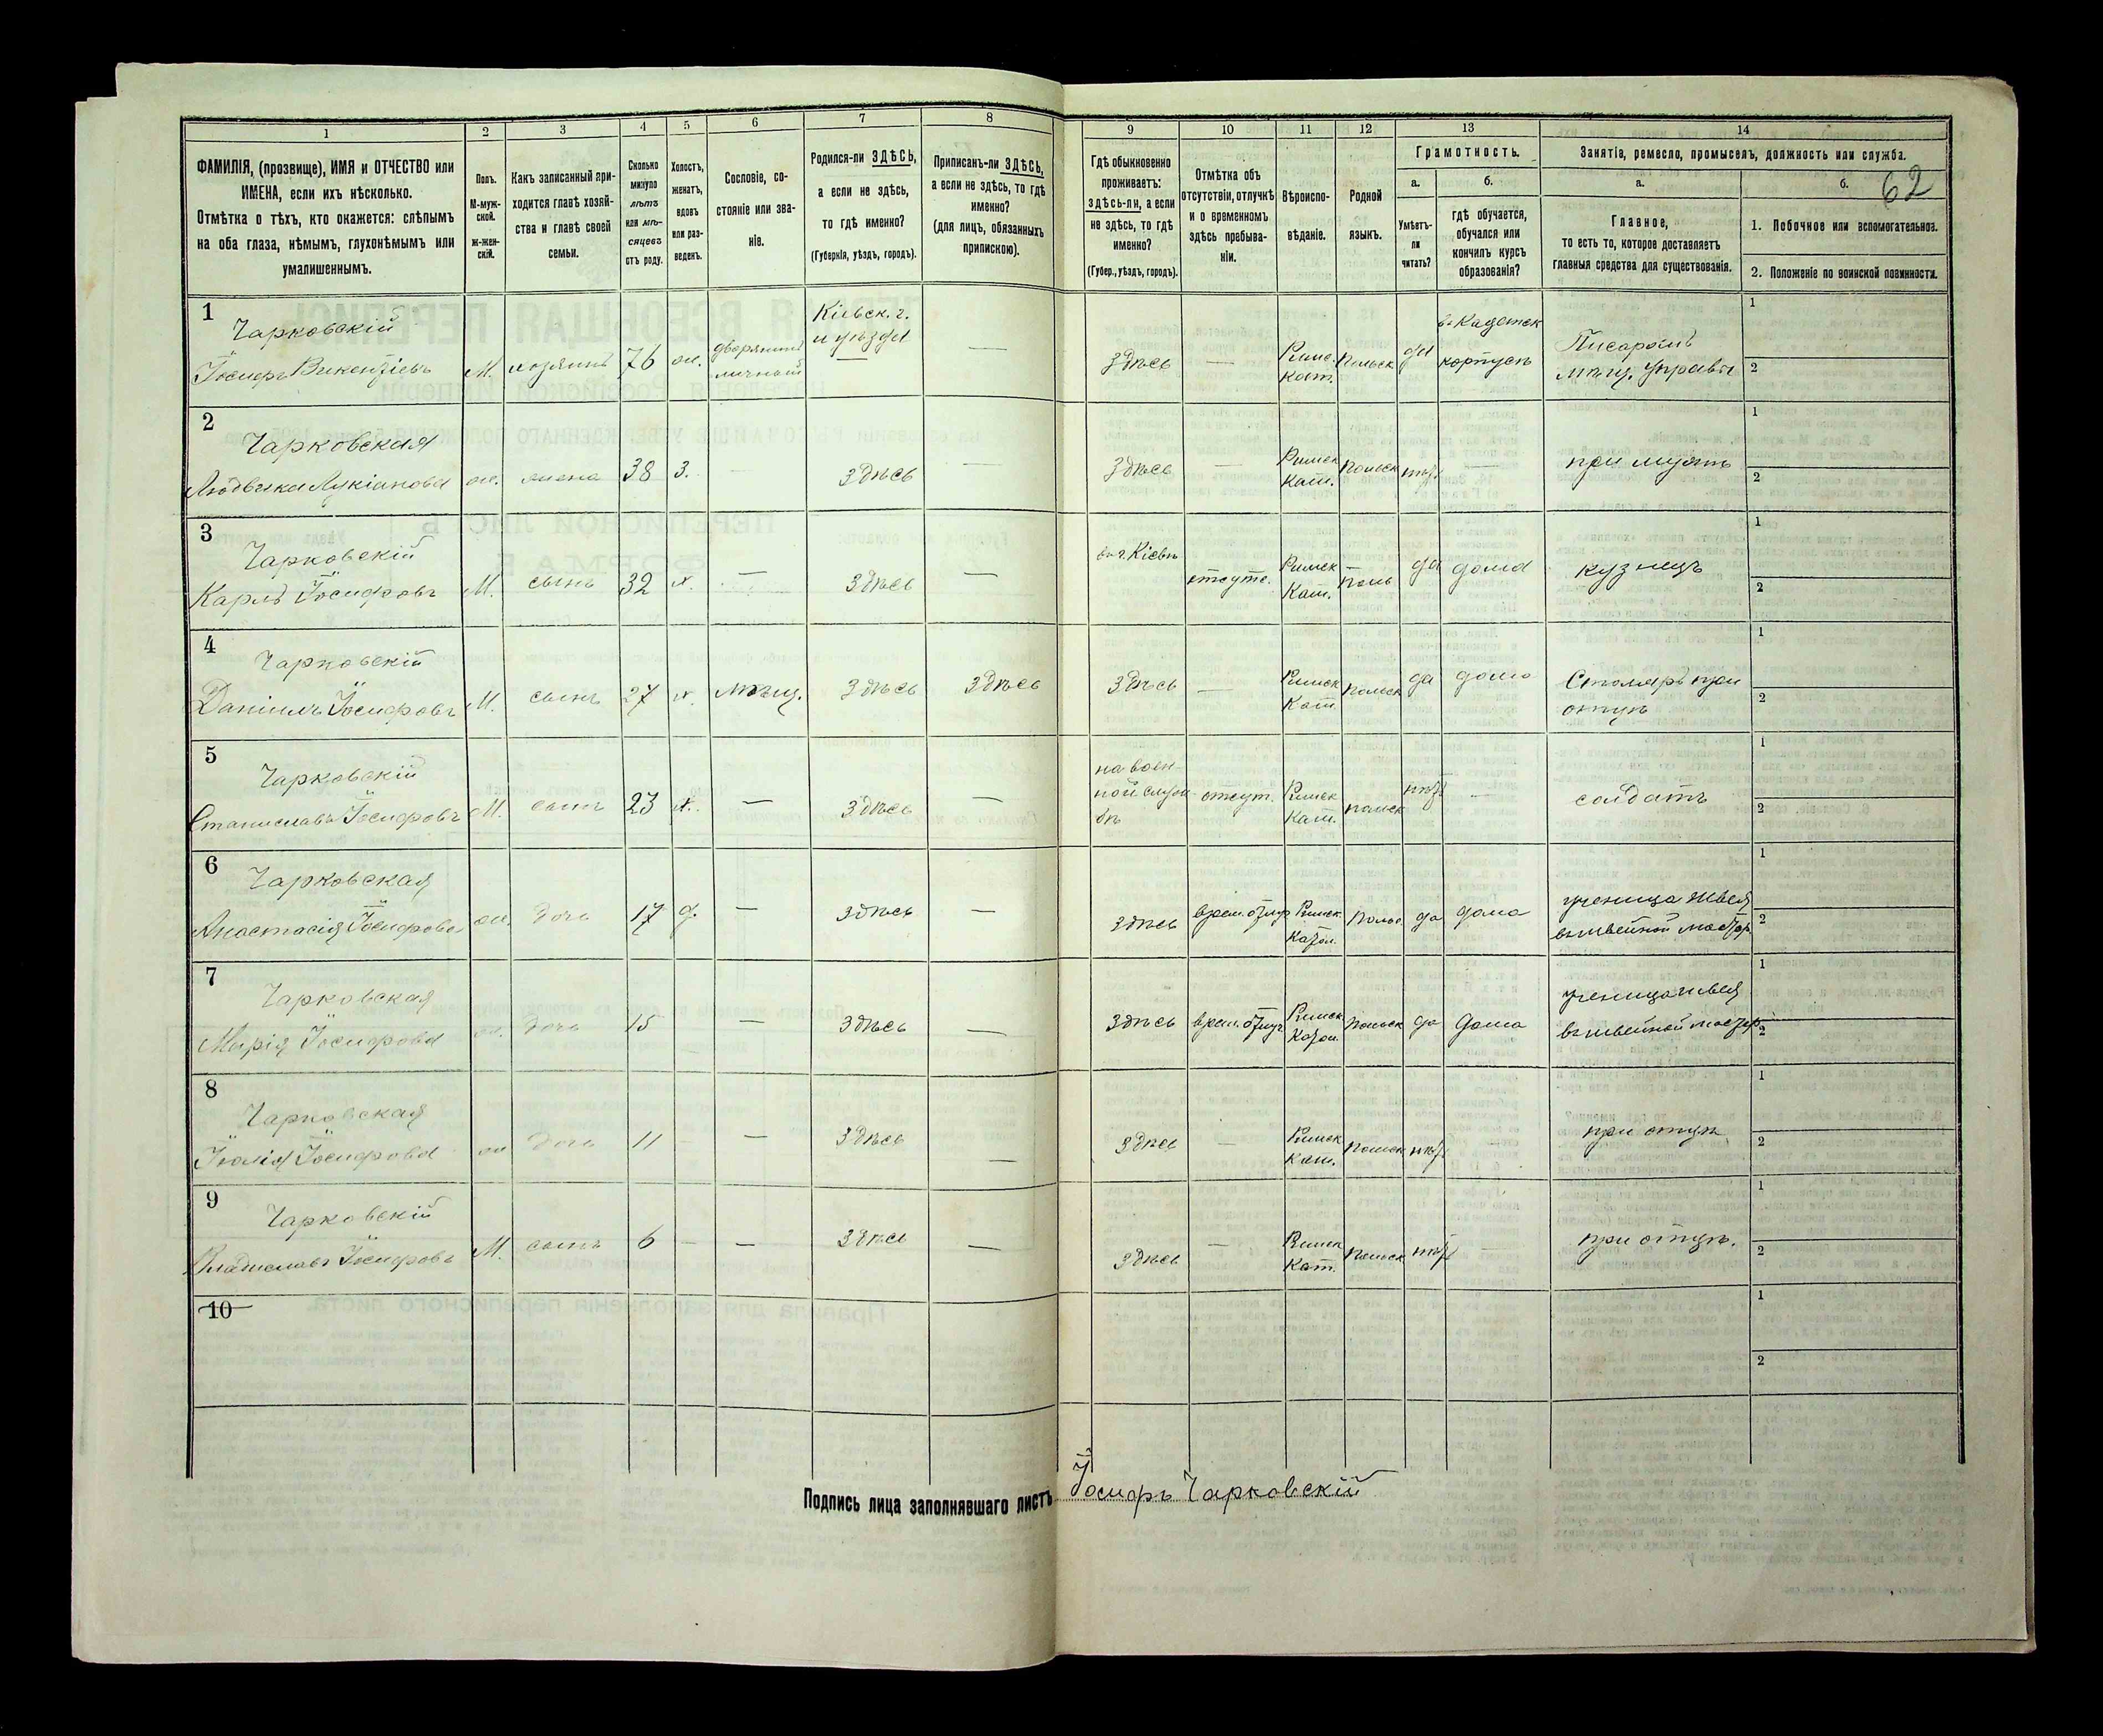 1 2 3 4 5 6 7 8 9 10 11 12 13 14
ФАМИЛІЯ, (прозвище), ИМЯ и ОТЧЕСТВО или
ИМЕНА, если ихъ нѣсколько.
Отмѣтка о тѣхъ, кто окажется: слѣпымъ
на оба глаза, нѣмымъ, глухонѣмымъ или
умалишеннымъ.
Полъ.
М-муж-
ской.
ж-жен-
скій.
Какъ записанный при-
ходится главѣ хозяй-
ства и главѣ своей
семьи.
Сколько
минуло
лѣтъ
или мѣ-
сяцевъ
отъ роду.
Холостъ,
женатъ,
вдовъ
или раз-
веденъ.
Сословіе, со-
стояніе или зва-
ніе.
Родился-ли ЗДѢСЬ,
а если не здѣсь,
то гдѣ именно?
(Губернія, уѣздъ, городъ).
Приписанъ-ли ЗДѢСЬ,
а если не здѣсь, то гдѣ
именно?
(для лицъ, обязанныхъ
припискою).
Гдѣ обыкновенно
проживаетъ:
здѣсь-ли, а если
не здѣсь, то гдѣ
именно?
(Губер., уѣздъ, городъ).
Отмѣтка объ
отсутствіи, отлучкѣ
и о временномъ
здѣсь пребыва-
ніи.
Вѣроиспо-
вѣданіе.
Родной
языкъ.
Грамотность.
а.
Умѣетъ-
ли
читать?
б.
гдѣ обучается,
обучался или
кончилъ курсъ
образованія?
Занятіе, ремесло, промыселъ, должность или служба.
а.
Главное,
то есть то, которое доставляетъ
главныя средства для существованія.
б.
62
1. Побочное или вспомогательное.
2. Положеніе по воинской повинности.
1
Чарковскій
Іосифъ Викентіевъ
М. хозяинъ 76 ж. дворянинъ
личный
Кіевск. г.
и уѣзда
—
здѣсь — Римс.
Кат. Польск да въ Кадетск
корпусѣ Писаромъ
мѣщ. управы
1
2
2
Чарковская
Людвика Лукіанова
ж. жена 38 з. — здѣсь —
здѣсь — Римск
Кат. польск нѣт — при мужѣ
1
2
3
Чарковскій
Карлъ Іосифовъ
М. сынъ 32 х. — здѣсь —
въ г. Кіевѣ отсутс. Римск
Кат. поль да дома кузнецъ
1
2
4
Чарковскій
Даніилъ Іосифовъ
М. сынъ 27 х. мѣщ. здѣсь здѣсь
здѣсь — Римск
Кат. польск да дома Столяръ при
отцѣ
1
2
5
Чарковскій
Станиславъ Іосифовъ
М. сынъ 23 х. — здѣсь —
на воен-
ной служ
бѣ
отсут. Римск
Кат. польск нѣт — солдатъ
1
2
6
Чарковская
Анастасія Іосифова
ж. дочь 17 д. — здѣсь —
здѣсь врем. отлуч Римск.
Катол. польс да дома ученица швея
въ швейной мастер
1
2
7
Чарковская
Марія Іосифова
ж. дочь 15 — здѣсь —
здѣсь врем. отлуч Римск
Катол. польск да дома ученица швея
въ швейной мастер
1
2
8
Чарковская
Юлія Іосифова
ж дочь 11 — — здѣсь —
здѣсь — Римск
Кат. польск нѣт — при отцѣ
1
2
9
Чарковскій
Владиславъ Іосифовъ
М. сынъ 6 — — здѣсь —
здѣсь — Римск
Кат. польск нѣт — при отцѣ.
1
2
10
1
2
Подпись лица заполнявшаго листъ Іосифъ Чарковскій